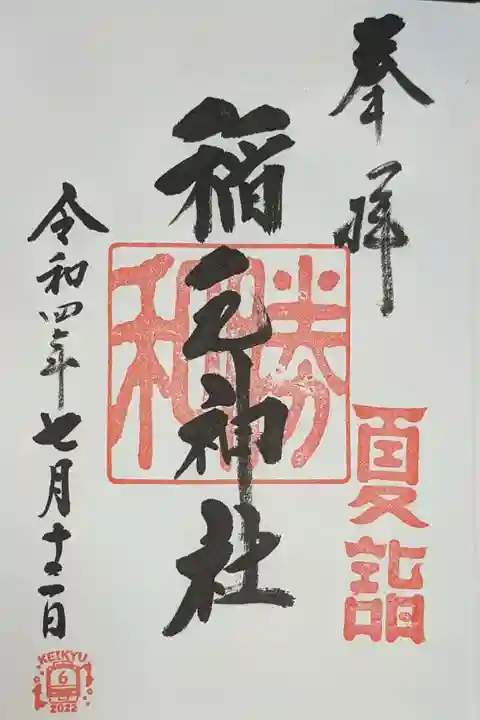 奉拝
夏詣
稲毛神社
勝和
令和四年七月十二日
KEIKYU
6
2022